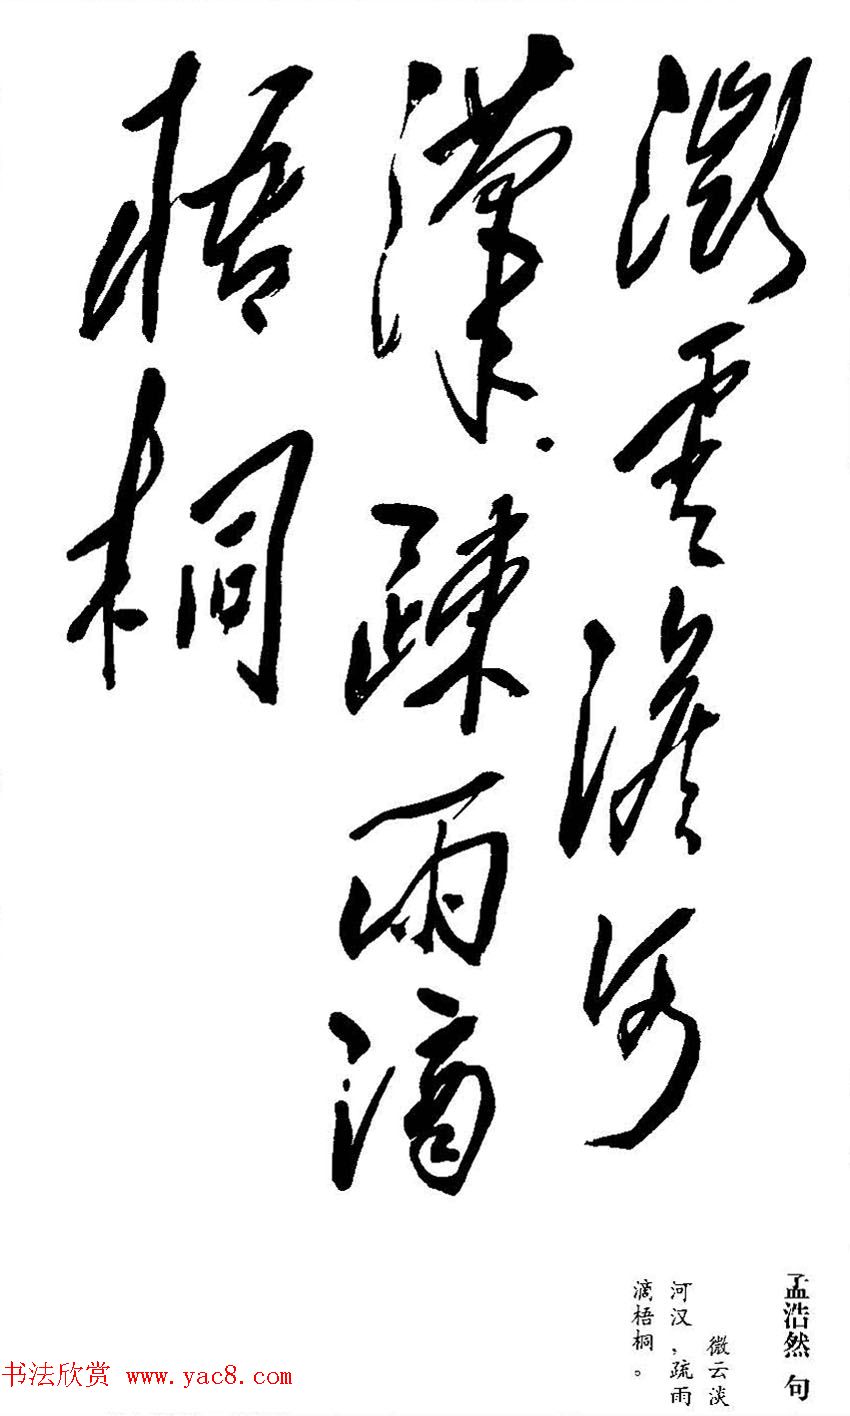 微雲澹河
漢.疎雨滴
梧桐
孟浩然 句
微云淡
河汉，疏雨
滴梧桐。
书法欣赏 www.yac8.com